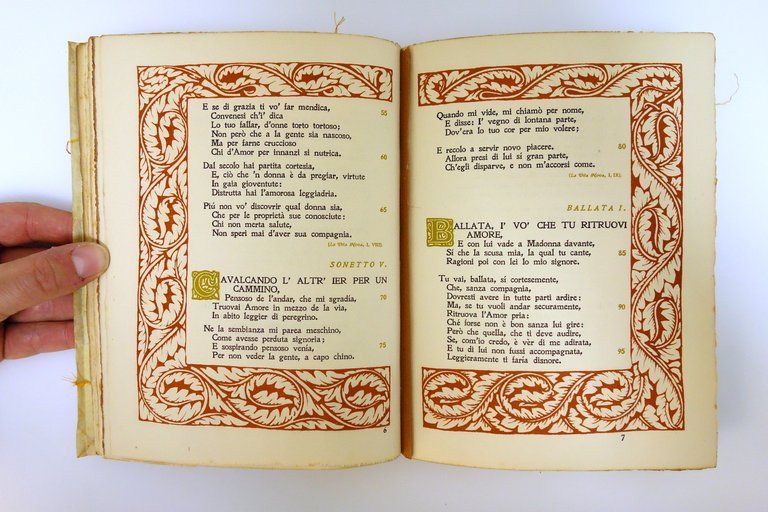 E se di grazia ti vo' far mendica,
Convenesi ch'i' dica 55
Lo tuo fallar, d'onne torto tortoso;
Non però che a la gente sia nascoso,
Ma per farne cruccioso
Chi d'Amor per innanzi si nutrica. 60
Dal secolo hai partita cortesia,
E, ciò che 'n donna è da pregiar, virtute
In gaia gioventute:
Distrutta hai l'amorosa leggiadria.
Piú non vo' discovrir qual donna sia, 65
Che per le proprietà sue conosciute:
Chi non merta salute,
Non speri mai d'aver sua compagnia.
(La Vita Nova, I, VIII)
SONETTO V.
CAVALCANDO L' ALTR' IER PER UN
CAMMINO,
Pensoso de l'andar, che mi sgradía, 70
Truovai Amore in mezzo de la via,
In abito leggier di peregrino.
Ne la sembianza mi parea meschino,
Come avesse perduta signoria;
E sospirando pensoso venía, 75
Per non veder la gente, a capo chino.
6
Quando mi vide, mi chiamò per nome,
E disse: I' vegno di lontana parte,
Dov'era lo tuo cor per mio volere;
E recolo a servir novo piacere. 80
Allora presi di lui sí gran parte,
Ch'egli disparve, e non m'accorsi come.
(La Vita Nova, I, IX)
BALLATA I.
BALLATA, I' VO' CHE TU RITRUOVI
AMORE,
E con lui vade a Madonna davante,
Sí che la scusa mia, la qual tu cante, 85
Ragioni poi con lei lo mio signore.
Tu vai, ballata, sí cortesemente,
Che, sanza compagnia,
Dovresti avere in tutte parti ardire:
Ma, se tu vuoli andar securamente, 90
Ritruova l'Amor pria:
Ché forse non è bon sanza lui gire:
Però che quella, che ti deve audire,
Se, com'io credo, è vèr di me adirata,
E tu di lui non fussi accompagnata, 95
Leggieramente ti faria disnore.
7